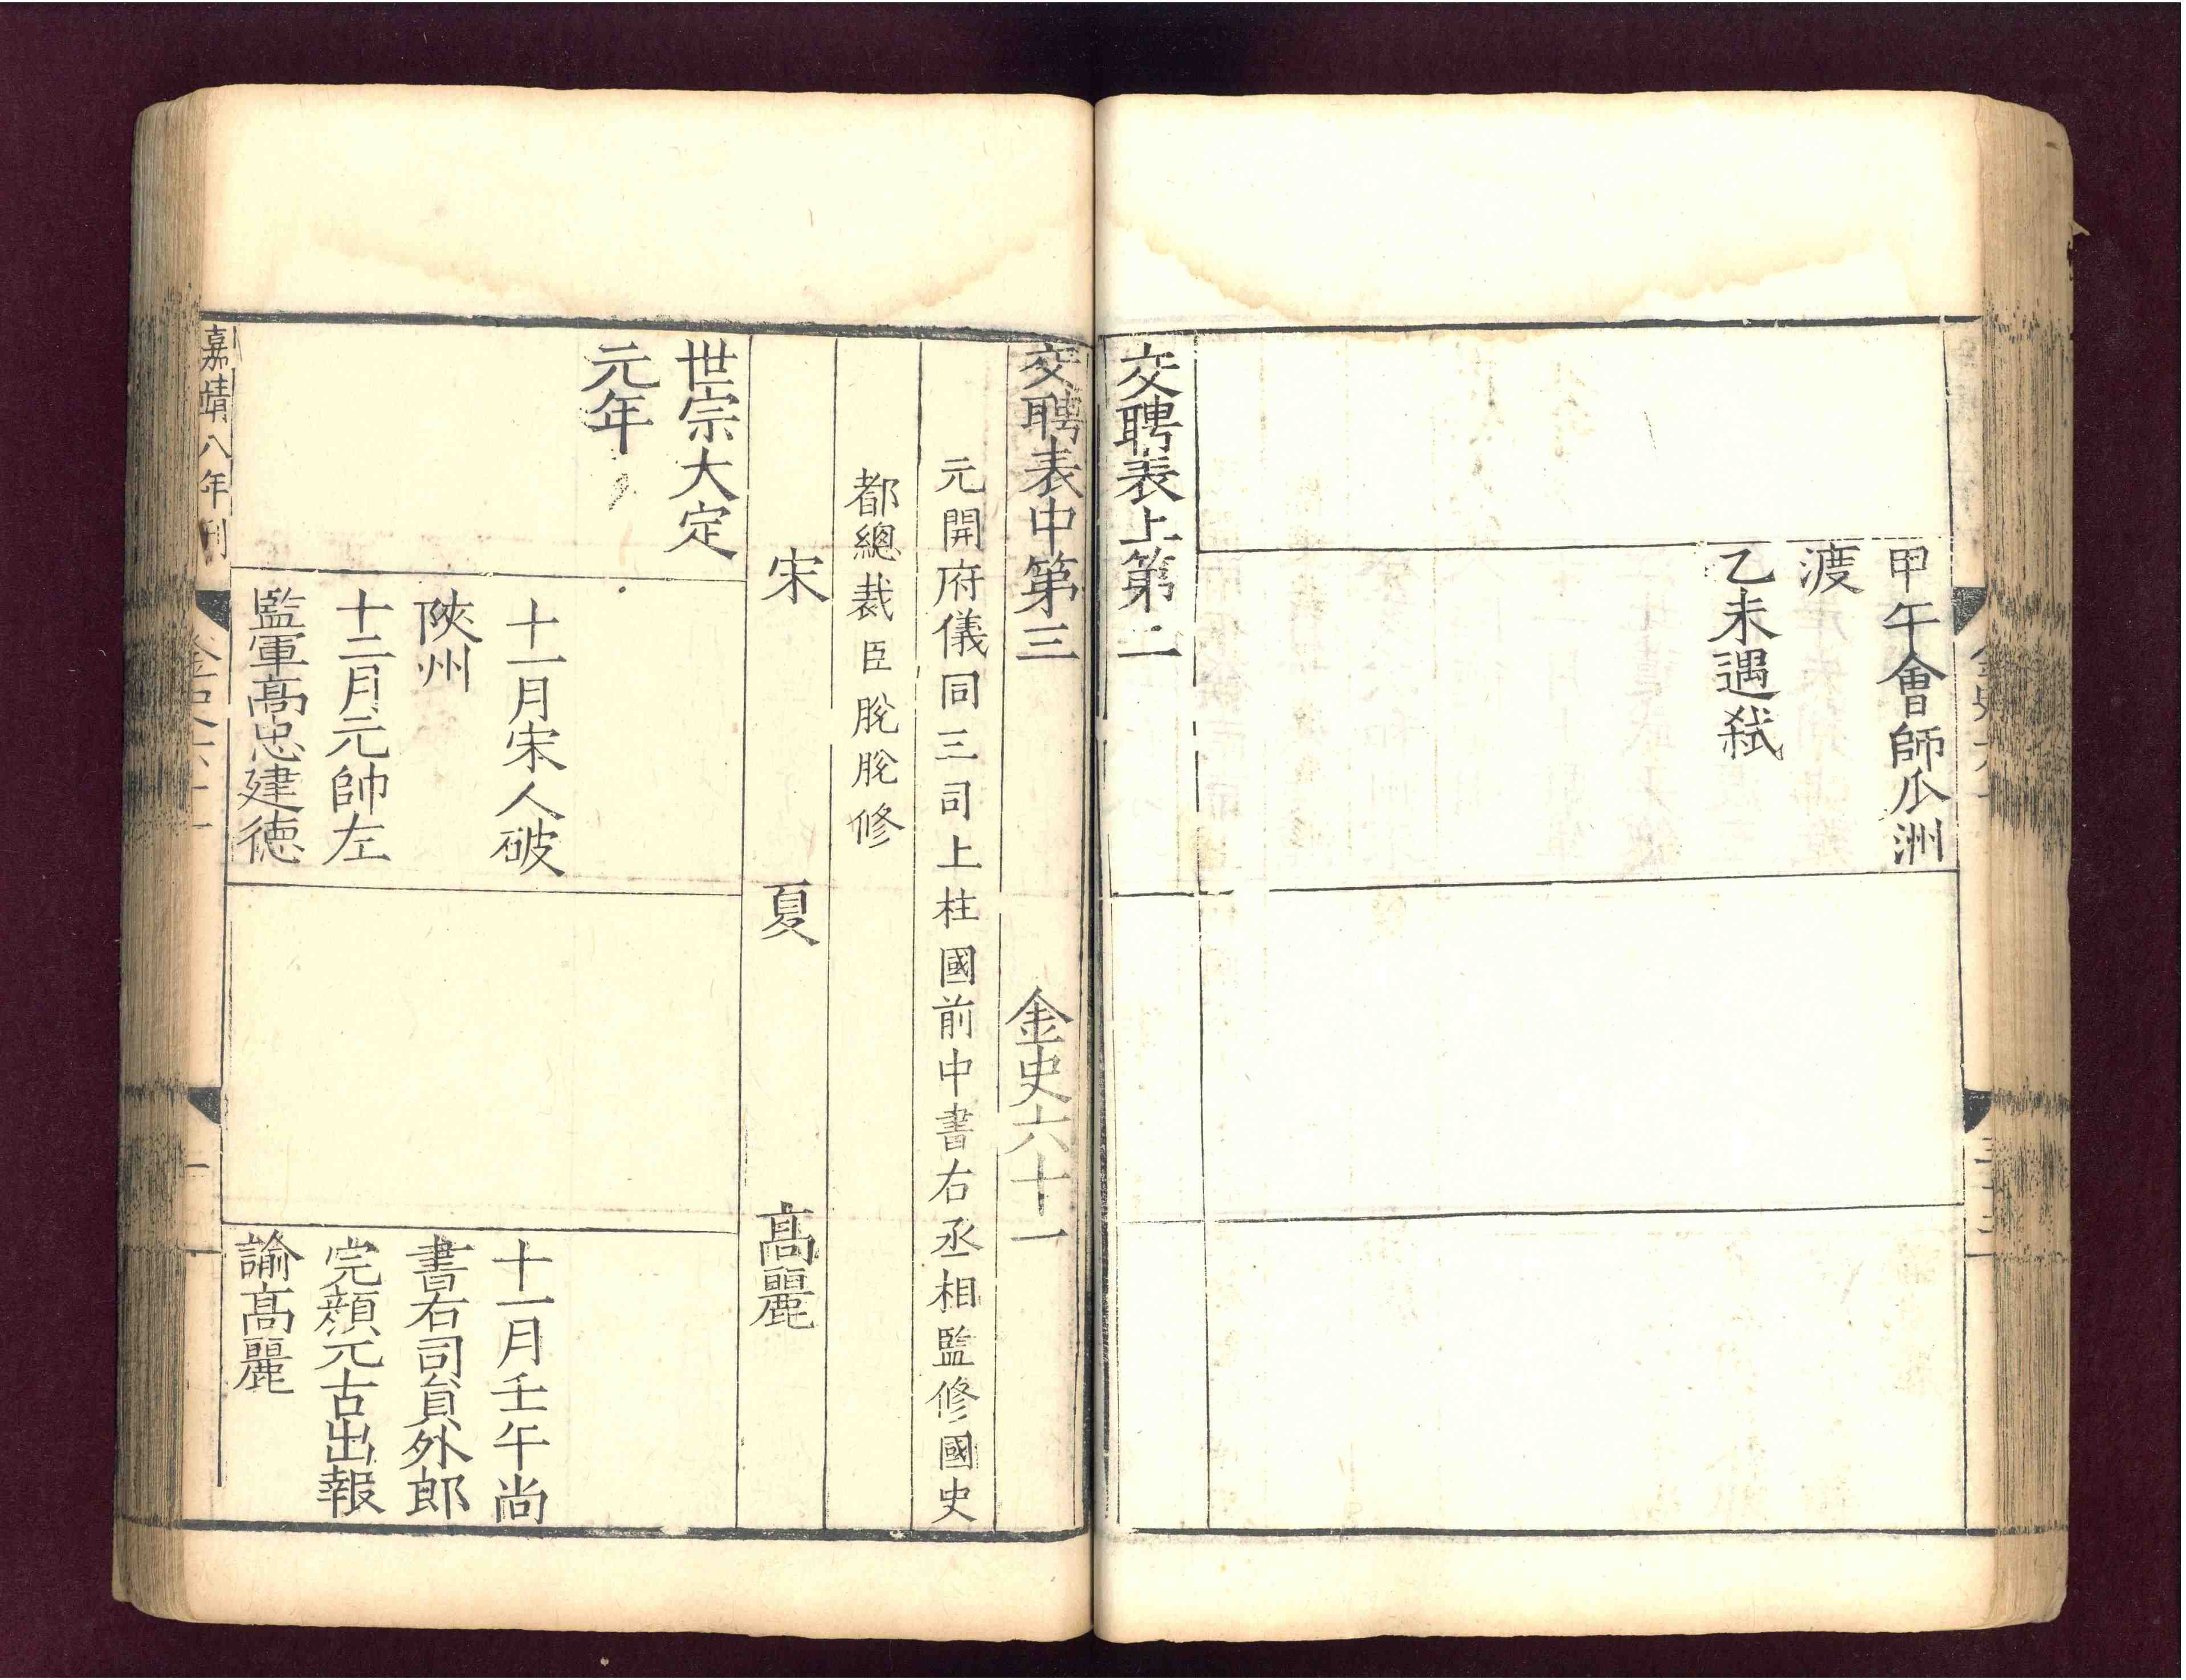 甲午會師瓜洲
渡
乙未遇弑
交聘表上第二
交聘表中第三 金史六十一
元開府儀同三司上柱國前中書右丞相監修國史
都總裁臣脫脫修
宋 夏 高麗
世宗大定
元年
十一月宋人破
陝州
十二月元帥左
監軍高忠建德
十一月壬午尚
書右司員外郎
完顏元古出報
諭高麗
嘉靖八年刊
金史六十一
一